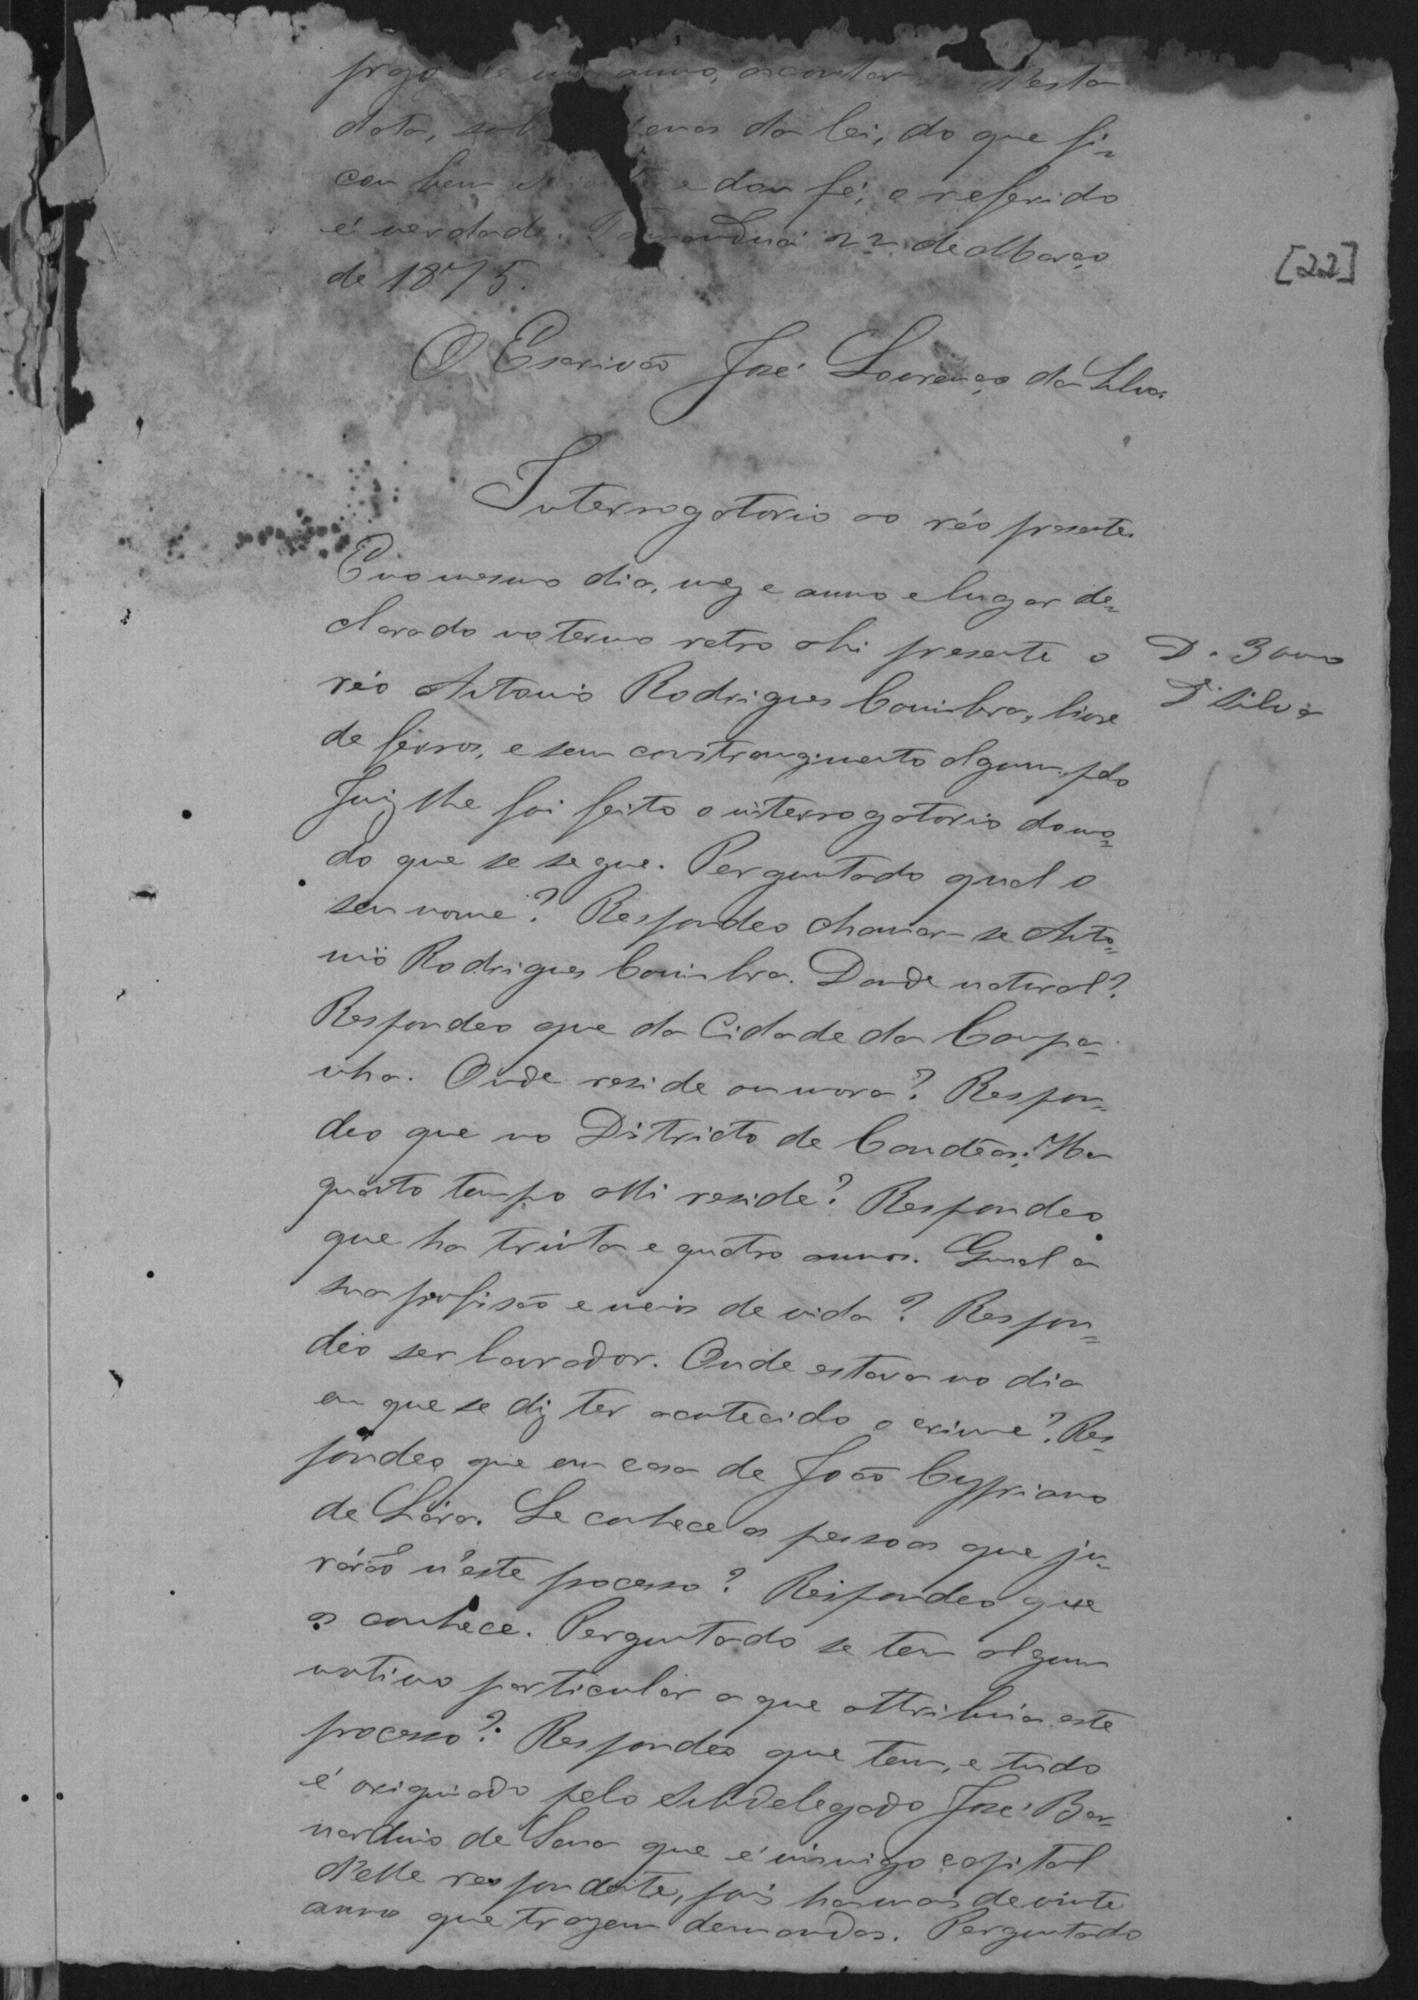 praso de um anno, a contar d'esta
data, sob penas da lei, do que fi-
cou bem sciente e dou fé; o referido
é verdade. Tamanduá 22 de Março
de 1875.
[22]
O Escrivão José Lourenço da Silva
Interrogatorio ao réo presente
E no mesmo dia, mez e anno e lugar de-
clarado no termo retro ahi presente o
D. 3000
D. Silva
réo Antonio Rodrigues Coimbra, livre
de ferros, e sem constrangimento algum, pelo
Juiz lhe foi feito o interrogatorio do mo-
do que se segue. Perguntado qual o
seu nome? Respondeo chamar-se Anto-
nio Rodrigues Coimbra. Donde natural?
Respondeo que da Cidade da Campa-
nha. Onde reside ou mora? Respon-
deo que no Districto de Candêas; Ha
quanto tempo alli reside? Respondeo
que ha trinta e quatro annos. Qual a
sua profissão e meios de vida? Respon-
deo ser lavrador. Onde estava no dia
em que se diz ter acontecido o crime? Res-
pondeo que em casa de João Cypriano
de Lára. Se conhece as pessoas que ju-
rárão n'este processo? Respondeo que
as conhece. Perguntado se tem algum
motivo particular a que attribúa este
processo? Respondeo que tem, e tudo
é originado pelo Subdelegado José Ber-
nardino de Sena que é inimigo capital
d'elle respondente, pois ha mais de vinte
anno que trazem demandas. Perguntado